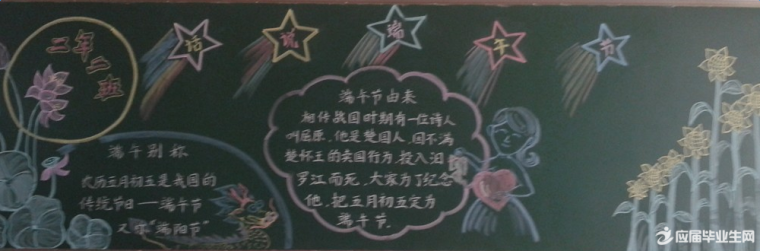 二年二班
话说端午节
端午别称
农历五月初五是我国的
传统节日——端午节
又称"端阳节"
端午节由来
相传战国时期有一位诗人
叫屈原,他是楚国人,因不满
楚怀王的卖国行为,投入汨
罗江而死,大家为了纪念
他,把五月初五定为
端午节.
应届毕业生网